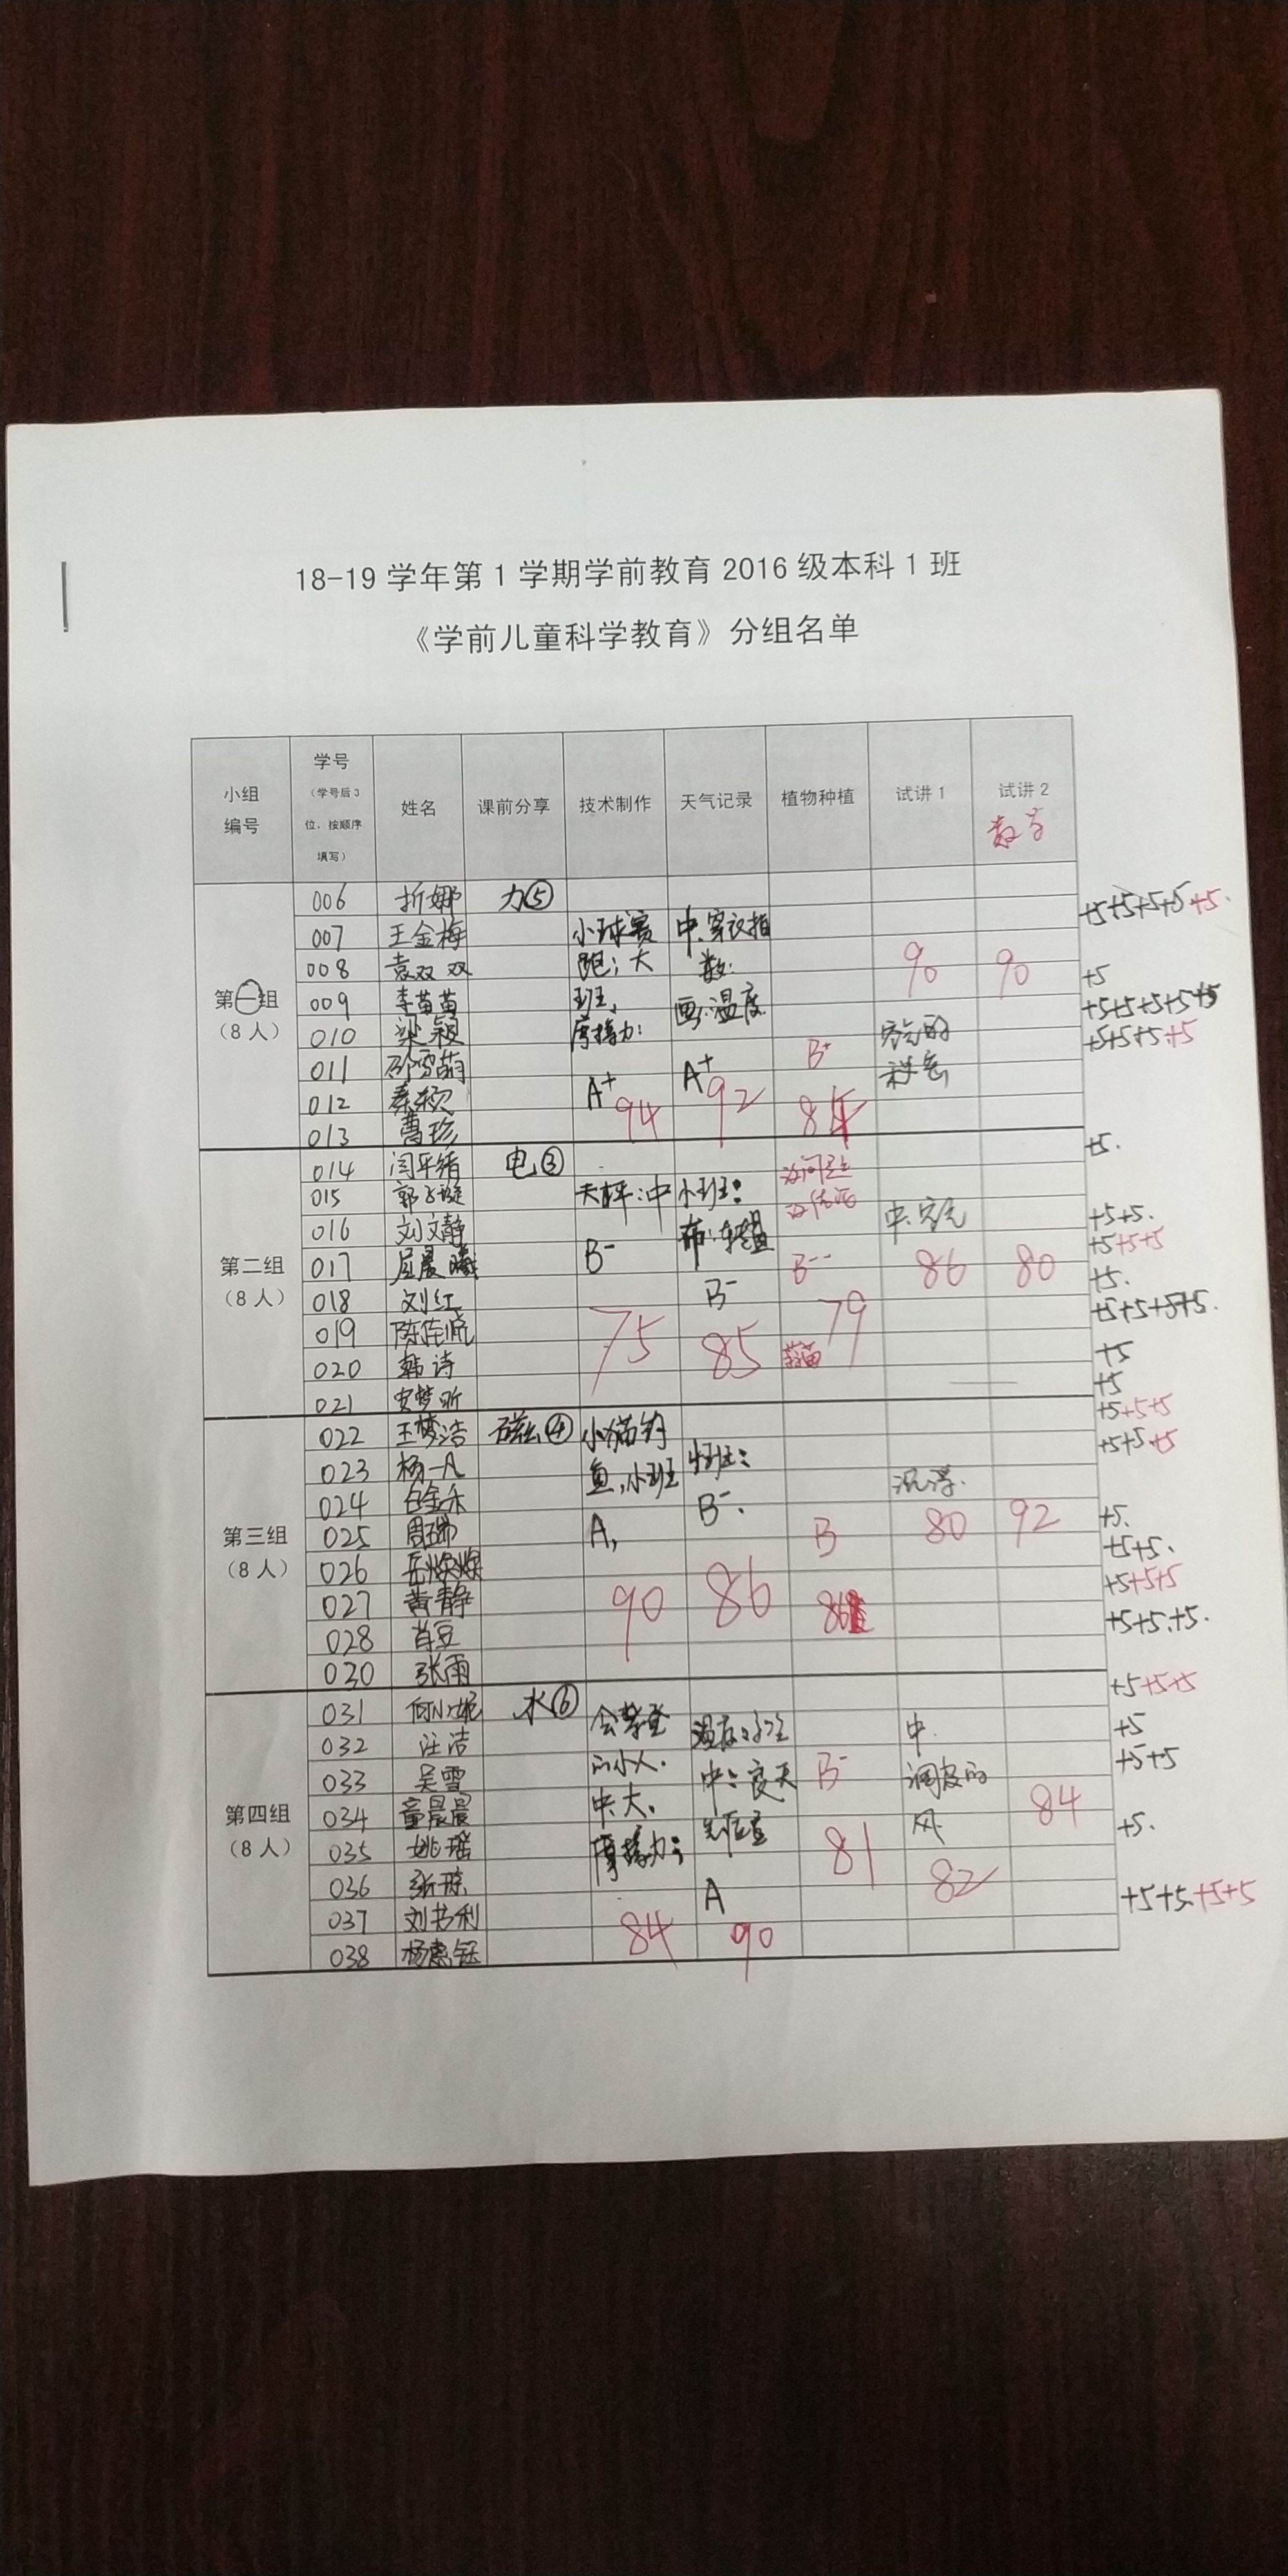 18-19 学年第 1 学期学前教育 2016 级本科 1 班
《学前儿童科学教育》分组名单
小组编号 学号（学号后3位，按顺序填写） 姓名 课前分享 技术制作 天气记录 植物种植 试讲 1 试讲 2 数学
第一组（8 人）
006 折娜 力⑤ +5+5+5+5+5.
007 王金梅 小球赛 中.穿衣指
008 袁双双 跑；大 数. 90 90 +5
009 李苗苗 班. 画:温度 +5+5+5+5+5
010 梁颖 摩擦力: +5+5+5+5
011 邵雪萌 A+ B+
012 秦颖 A+ 94 92 84
013 曹珍
第二组（8 人）
014 闫平绪 电③ +5.
015 天秤:中 小班:
016 刘文静 +5+5.
017 屈晨曦 B- B-- 86 80 +5+5+5
018 刘红 B- +5.
019 陈佳悦 75 85 79 +5+5+5+5.
020 韩诗 +5
021 安梦昕 +5
第三组（8 人）
022 王梦洁 磁④ 小猫钓 +5+5+5
023 杨一凡 鱼,小班 +5+5+5
024 白金禾 B-. 沉浮.
025 周瑞 A, B 80 92 +5.
026 岳焕焕 +5+5.
027 黄静 90 86 86 +5+5+5
028 肖豆 +5+5.+5.
030 张雨
第四组（8 人）
031 何小妮 水⑥ +5+5+5
032 汪洁 中. +5
033 吴雪 的小人. B- 调皮的 +5+5
034 童晨晨 中.大. 风 84
035 姚瑶 摩擦力; 81 +5.
036 张琼 A 82
037 刘书利 84 90 +5+5+5+5
038 杨惠钰